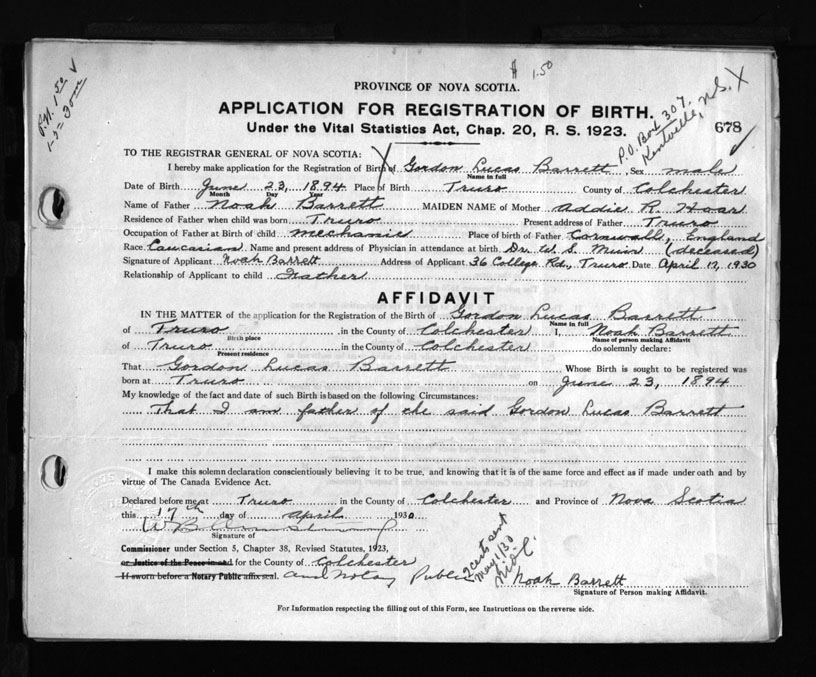 $ 1.50
PROVINCE OF NOVA SCOTIA.
APPLICATION FOR REGISTRATION OF BIRTH.
Under the Vital Statistics Act, Chap. 20, R. S. 1923.
678
P.O. Box 307.
Kentville, N.S. X
TO THE REGISTRAR GENERAL OF NOVA SCOTIA:
I hereby make application for the Registration of Birth of Gordon Lucas Barrett, Sex male
Name in full
Date of Birth June 23, 1894 Place of Birth Truro County of Colchester
Month Day Year
Name of Father Noah Barrett MAIDEN NAME of Mother Addie R. Hoar
Residence of Father when child was born Truro Present address of Father Truro
Occupation of Father at Birth of child mechanic Place of birth of Father Cornwall, England
Race Caucasian Name and present address of Physician in attendance at birth Dr. W. S. Muir (deceased)
Signature of Applicant Noah Barrett Address of Applicant 36 College Rd., Truro Date April 17, 1930
Relationship of Applicant to child Father
AFFIDAVIT
IN THE MATTER of the application for the Registration of the Birth of Gordon Lucas Barrett
Name in full
of Truro, in the County of Colchester I, Noah Barrett
Birth place Name of person making Affidavit
of Truro in the County of Colchester do solemnly declare:
Present residence
That Gordon Lucas Barrett Whose Birth is sought to be registered was
born at Truro on June 23, 1894
My knowledge of the fact and date of such Birth is based on the following Circumstances:
That I am father of the said Gordon Lucas Barrett
I make this solemn declaration conscientiously believing it to be true, and knowing that it is of the same force and effect as if made under oath and by
virtue of The Canada Evidence Act.
Declared before me at Truro in the County of Colchester and Province of Nova Scotia
this 17th day of April 1930
Signature of
Commissioner under Section 5, Chapter 38, Revised Statutes, 1923,
or Justice of the Peace in and for the County of Colchester
If sworn before a Notary Public affix seal. and Notary Public
2 certs sent
May 1/30
Noah Barrett
Signature of Person making Affidavit.
For Information respecting the filling out of this Form, see Instructions on the reverse side.